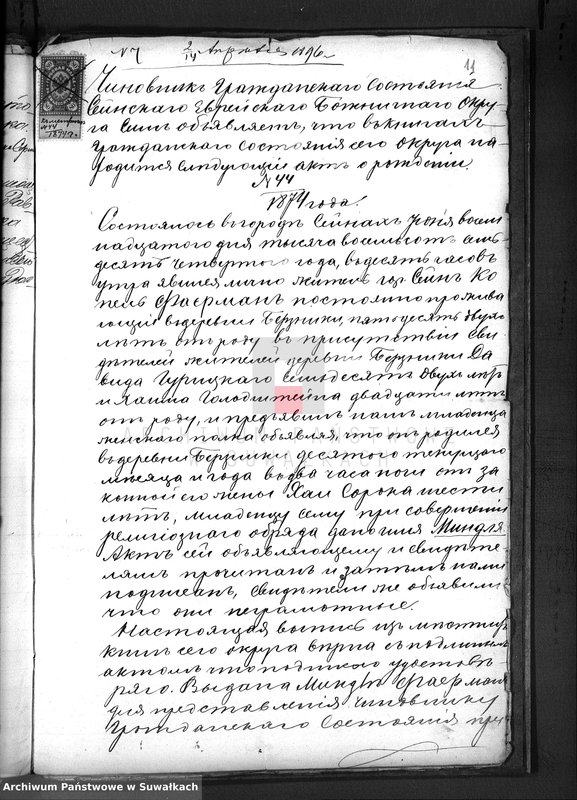 N 7 2/14 Апреля 1896
11
Чиновникъ Гражданскаго Состоянія
Сейнскаго Еврейскаго Божничнаго Окру-
га симъ объявляетъ, что въ книгахъ
Гражданскаго Состоянія сего округа на-
ходится слѣдующій актъ о рожденіи.
N 44
1874 года.
Состоялось въ городѣ Сейнахъ Іюня восем
надцатаго дня тысяча восемьсотъ семь-
десятъ четвертаго года, въ десять часовъ
утра явился лично житель гор. Сейнъ Ко
пель Фаерманъ постоянно прожива
ющій въ деревни Берзники, пятьдесятъ двухъ
лѣтъ отъ роду въ присутствіи сви
дѣтелей жителей деревни Берзники Да
вида Гурицкаго семьдесятъ двухъ лѣтъ
и Хаима Голодштейна двадцати лѣтъ
отъ роду, и предъявилъ намъ младенца
женскаго пола объявляя, что онъ родился
въ деревни Берзники десятаго текущаго
мѣсяца и года въ два часа ночи отъ за
конной его жены Хаи Сорока шести
лѣтъ, младенцу сему при совершеніи
религіознаго обряда дано имя Миндля
Актъ сей объявляющему и свидѣте-
лямъ прочитанъ и затѣмъ нами
подписанъ, свидѣтели же объявили
что они неграмотные.
Настоящая выпись изъ метрич.
книгъ сего округа вѣрна съ подлиннымъ
актомъ что подписью удостовѣ
ряю. Выдана Миндлѣ Фаерманъ
для представленія чиновнику
Гражданскаго Состоянія при
ARCHIWUM PAŃSTWOWE
W SUWAŁKACH
Archiwum Państwowe w Suwałkach